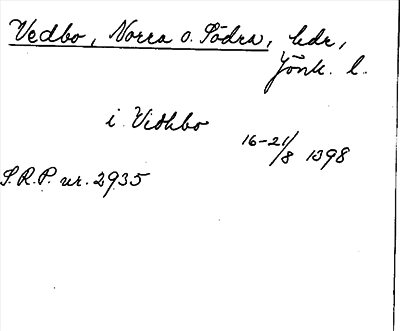 Vedbo, Norra o. Södra, hdr,
Jönk. l.
i Vidhbo
16-21/8 1398
S.R.P. nr. 2935